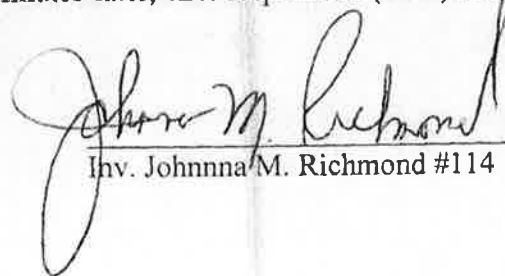 Johnna M. Richmond
Inv. Johnnna M. Richmond #114